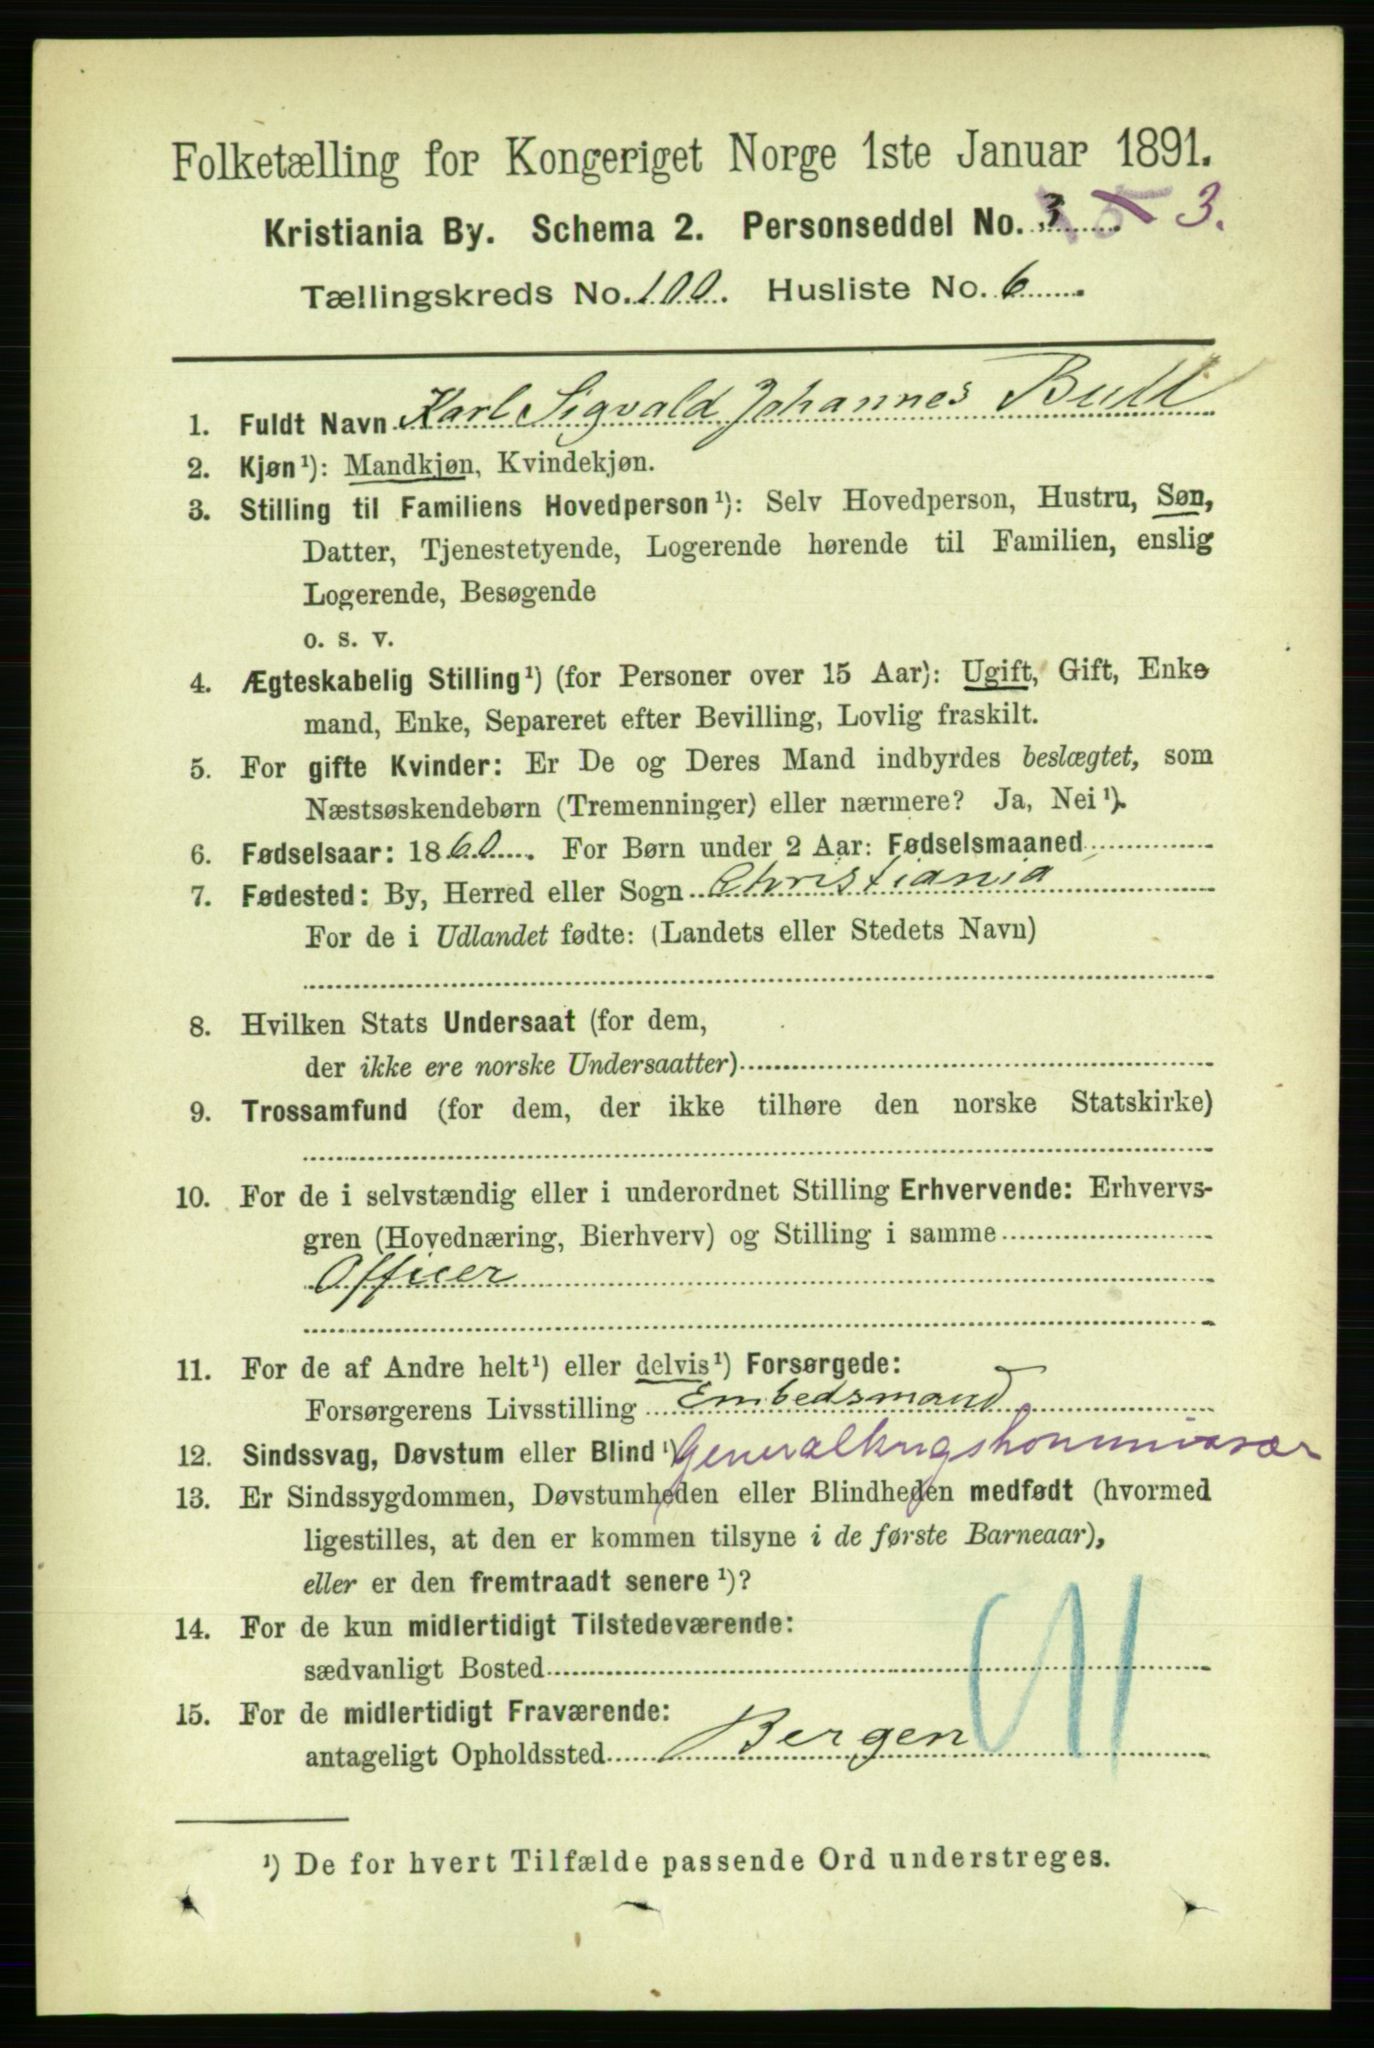 Folketælling for Kongeriget Norge 1ste Januar 1891.
Kristiania By. Schema 2. Personseddel No. 3 5 3.
Tællingskreds No. 100. Husliste No. 6
1. Fuldt Navn Karl Sigvald Johannes Bull
2. Kjøn ¹): Mandkjøn, Kvindekjøn.
3. Stilling til Familiens Hovedperson ¹): Selv Hovedperson, Hustru, Søn,
Datter, Tjenestetyende, Logerende hørende til Familien, enslig
Logerende, Besøgende
o. s. v.
4. Ægteskabelig Stilling ¹) (for Personer over 15 Aar): Ugift, Gift, Enke
mand, Enke, Separeret efter Bevilling, Lovlig fraskilt.
5. For gifte Kvinder: Er De og Deres Mand indbyrdes beslægtet, som
Næstsøskendebørn (Tremenninger) eller nærmere? Ja, Nei ¹).
6. Fødselsaar: 1860. For Børn under 2 Aar: Fødselsmaaned
7. Fødested: By, Herred eller Sogn Christiania
For de i Udlandet fødte: (Landets eller Stedets Navn)
8. Hvilken Stats Undersaat (for dem,
der ikke ere norske Undersaatter)
9. Trossamfund (for dem, der ikke tilhøre den norske Statskirke)
10. For de i selvstændig eller i underordnet Stilling Erhvervende: Erhvervs-
gren (Hovednæring, Bierhverv) og Stilling i samme
Officer
11. For de af Andre helt ¹) eller delvis ¹) Forsørgede:
Forsørgerens Livsstilling Embedsmand
12. Sindssvag, Døvstum eller Blind ¹) Generalkrigskommissær
13. Er Sindssygdommen, Døvstumheden eller Blindheden medfødt (hvormed
ligestilles, at den er kommen tilsyne i de første Barneaar),
eller er den fremtraadt senere ¹)?
14. For de kun midlertidigt Tilstedeværende:
sædvanligt Bosted
15. For de midlertidigt Fraværende:
antageligt Opholdssted Bergen
¹) De for hvert Tilfælde passende Ord understreges.